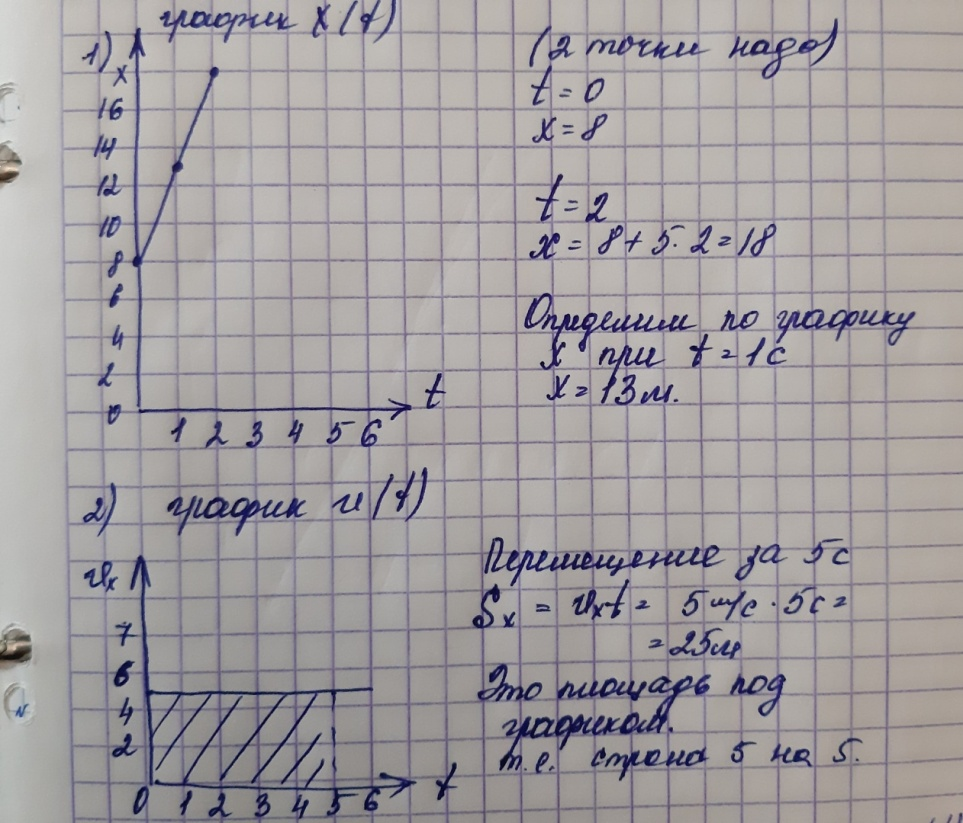 график x(t)
1)
x
16
14
12
10
8
6
4
2
0
1 2 3 4 5 6
t
(2 точки надо)
t = 0
x = 8
t = 2
x = 8 + 5 · 2 = 18
Определим по графику
x при t = 1с
x = 13 м.
2) график υ(t)
υx
7
6
4
2
0 1 2 3 4 5 6
t
Перемещение за 5с
Sx = υxt = 5 м/с · 5с =
= 25м
Это площадь под
графиком.
т.е. строна 5 на 5.